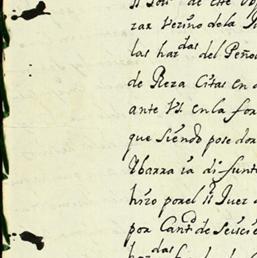 zar Vezino de la
las har.das del Peño
de Reza Citas en
ante Vs en la for
que siendo posedor
Ybarra ia difunt
hizo por el Sr Juez
por Cantd de seiscie